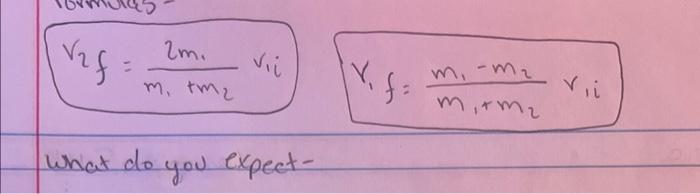 formulas -
v2f = 2m1 / m1 + m2 v1i
v1f = m1 - m2 / m1 + m2 v1i
what do you expect -